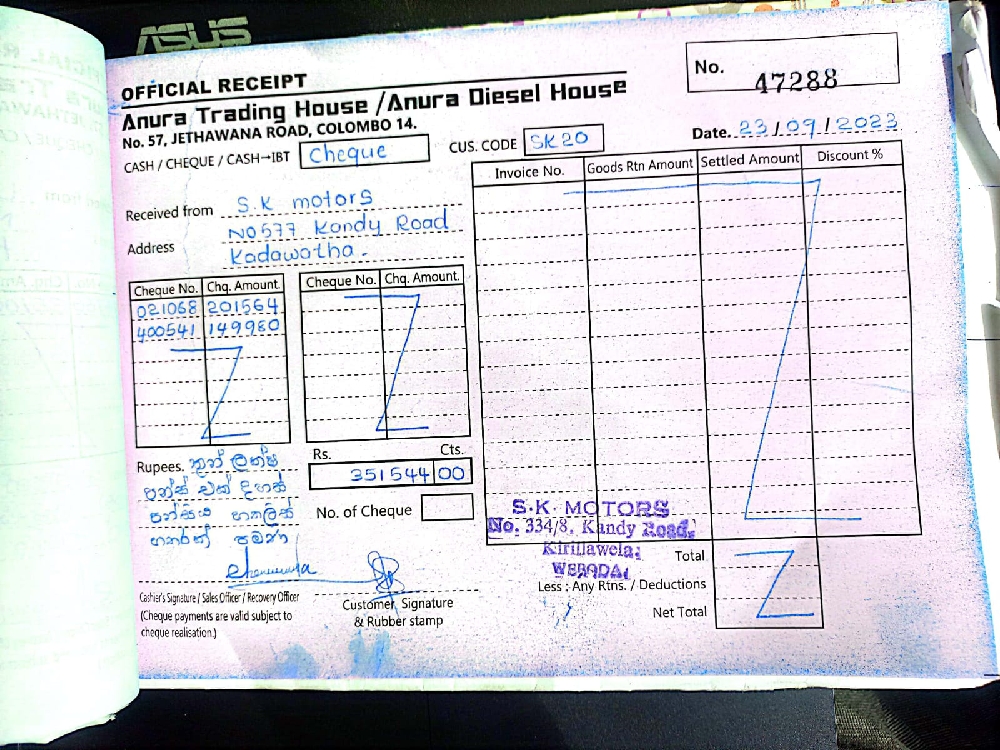 ASUS
OFFICIAL RECEIPT
No. 47288
Anura Trading House / Anura Diesel House
No. 57, JETHAWANA ROAD, COLOMBO 14.
Date. 23/09/2023
CASH / CHEQUE / CASH→IBT Cheque
CUS. CODE SK20
Invoice No. Goods Rtn Amount Settled Amount Discount %
Received from S.K motors
Address No577 Kandy Road
Kadawatha.
Cheque No. Chq. Amount. Cheque No. Chq. Amount.
021068 201564
400541 149980
Rupees. තුන් ලක්ෂ
පන්ස් එක් දහස්
පන්සය හතලිස්
හතරක් පමණි
Rs. Cts.
351544 00
No. of Cheque
S.K MOTORS
No. 334/8, Kandy Road,
Kirillawela,
WEBADA.
Total
Less : Any Rtns. / Deductions
Net Total
Cashier's Signature / Sales Officer / Recovery Officer
(Cheque payments are valid subject to
cheque realisation.)
Customer, Signature
& Rubber stamp